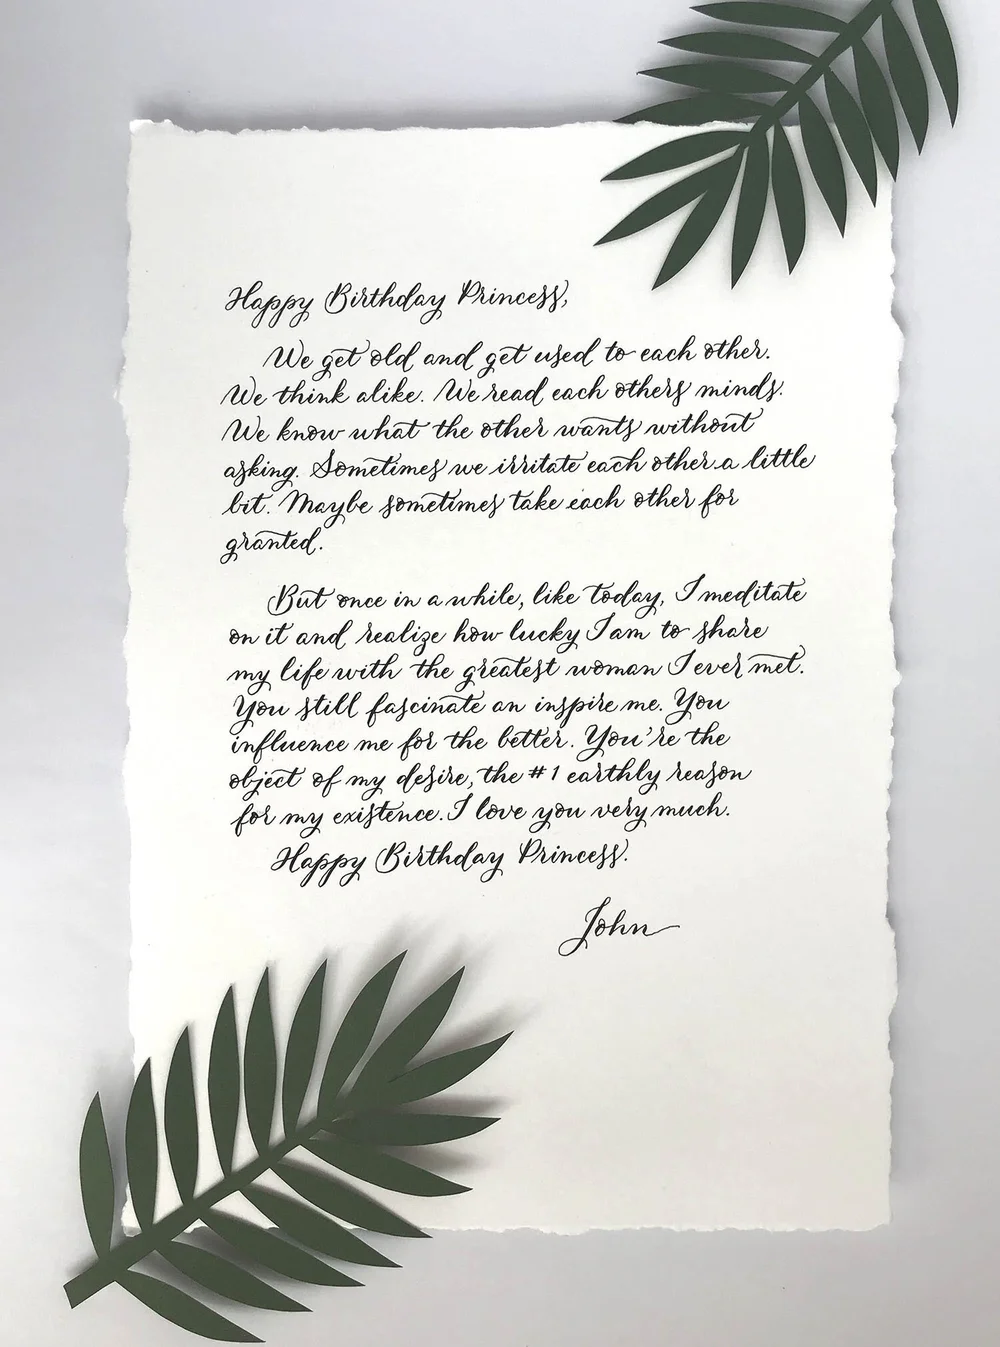 Happy Birthday Princess,
We get old and get used to each other.
We think alike. We read each others minds.
We know what the other wants without
asking. Sometimes we irritate each other a little
bit. Maybe sometimes take each other for
granted.
But once in a while, like today, I meditate
on it and realize how lucky I am to share
my life with the greatest woman I ever met.
You still fascinate an inspire me. You
influence me for the better. You're the
object of my desire, the #1 earthly reason
for my existence. I love you very much.
Happy Birthday Princess.
John